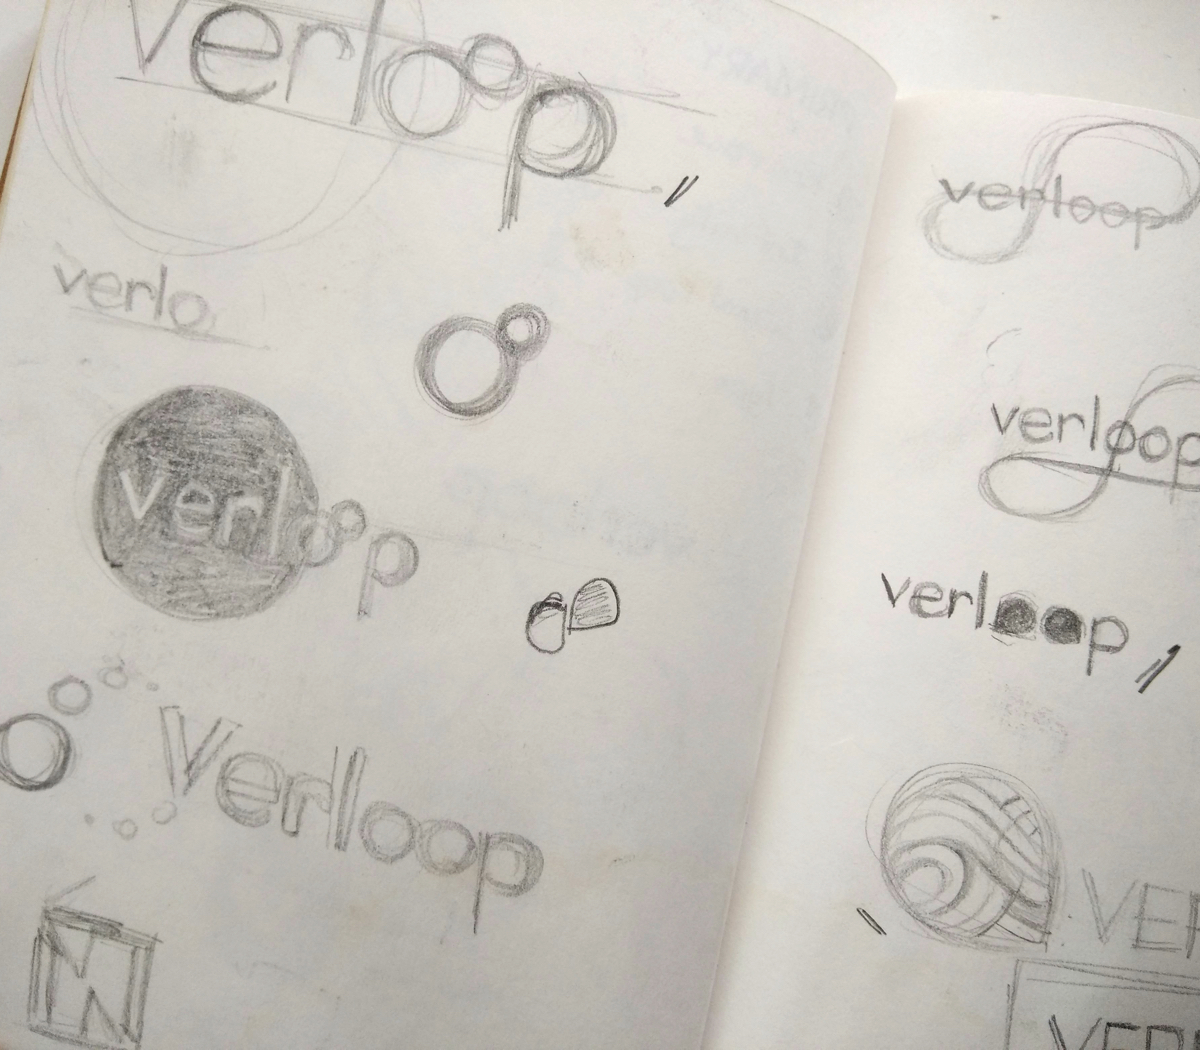 verloop
verlo
verloop
Verloop
verloop
verloop
verloop
VER
VER